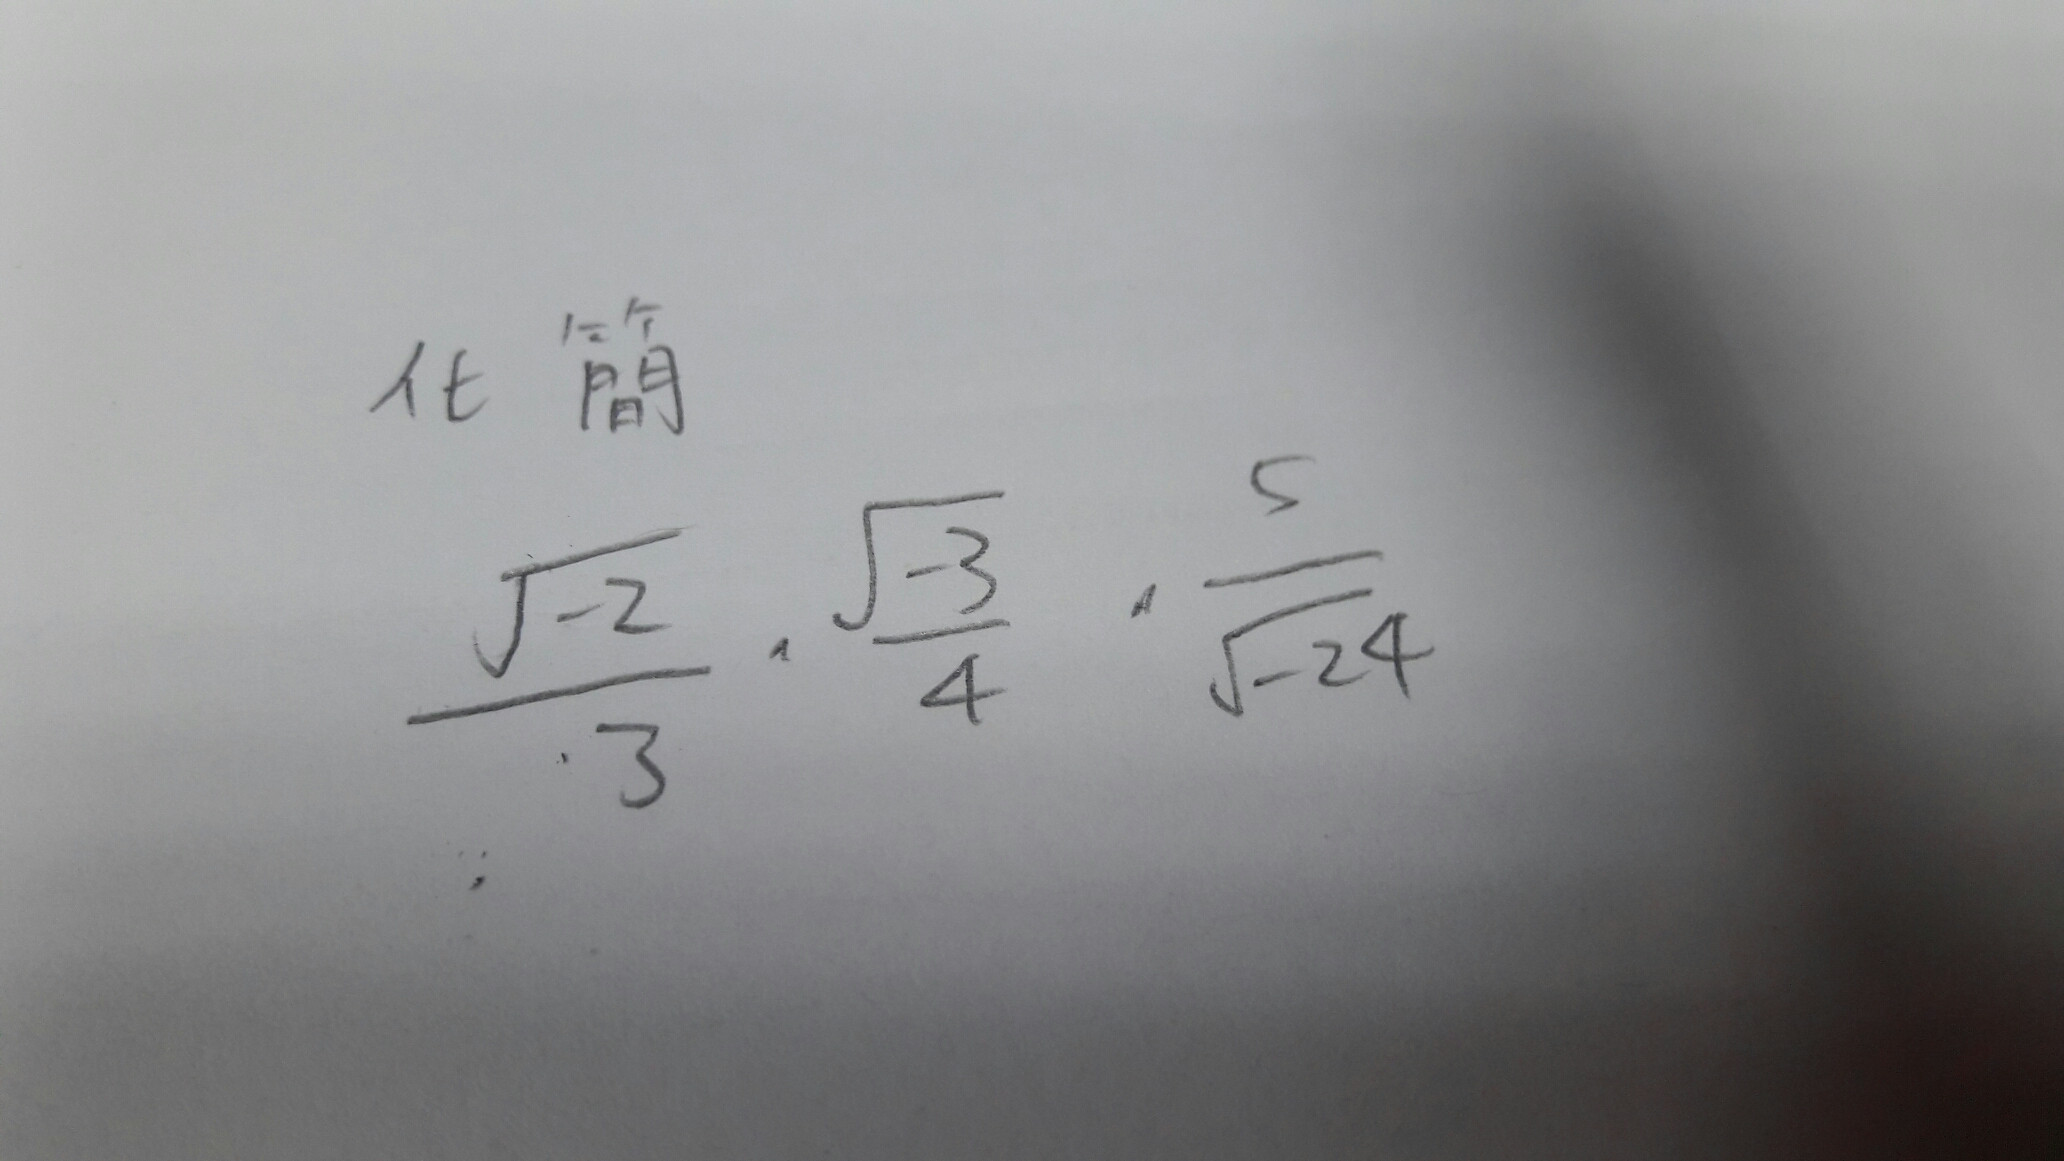 化簡
√-2/3 · √-3/4 · 5/√-24